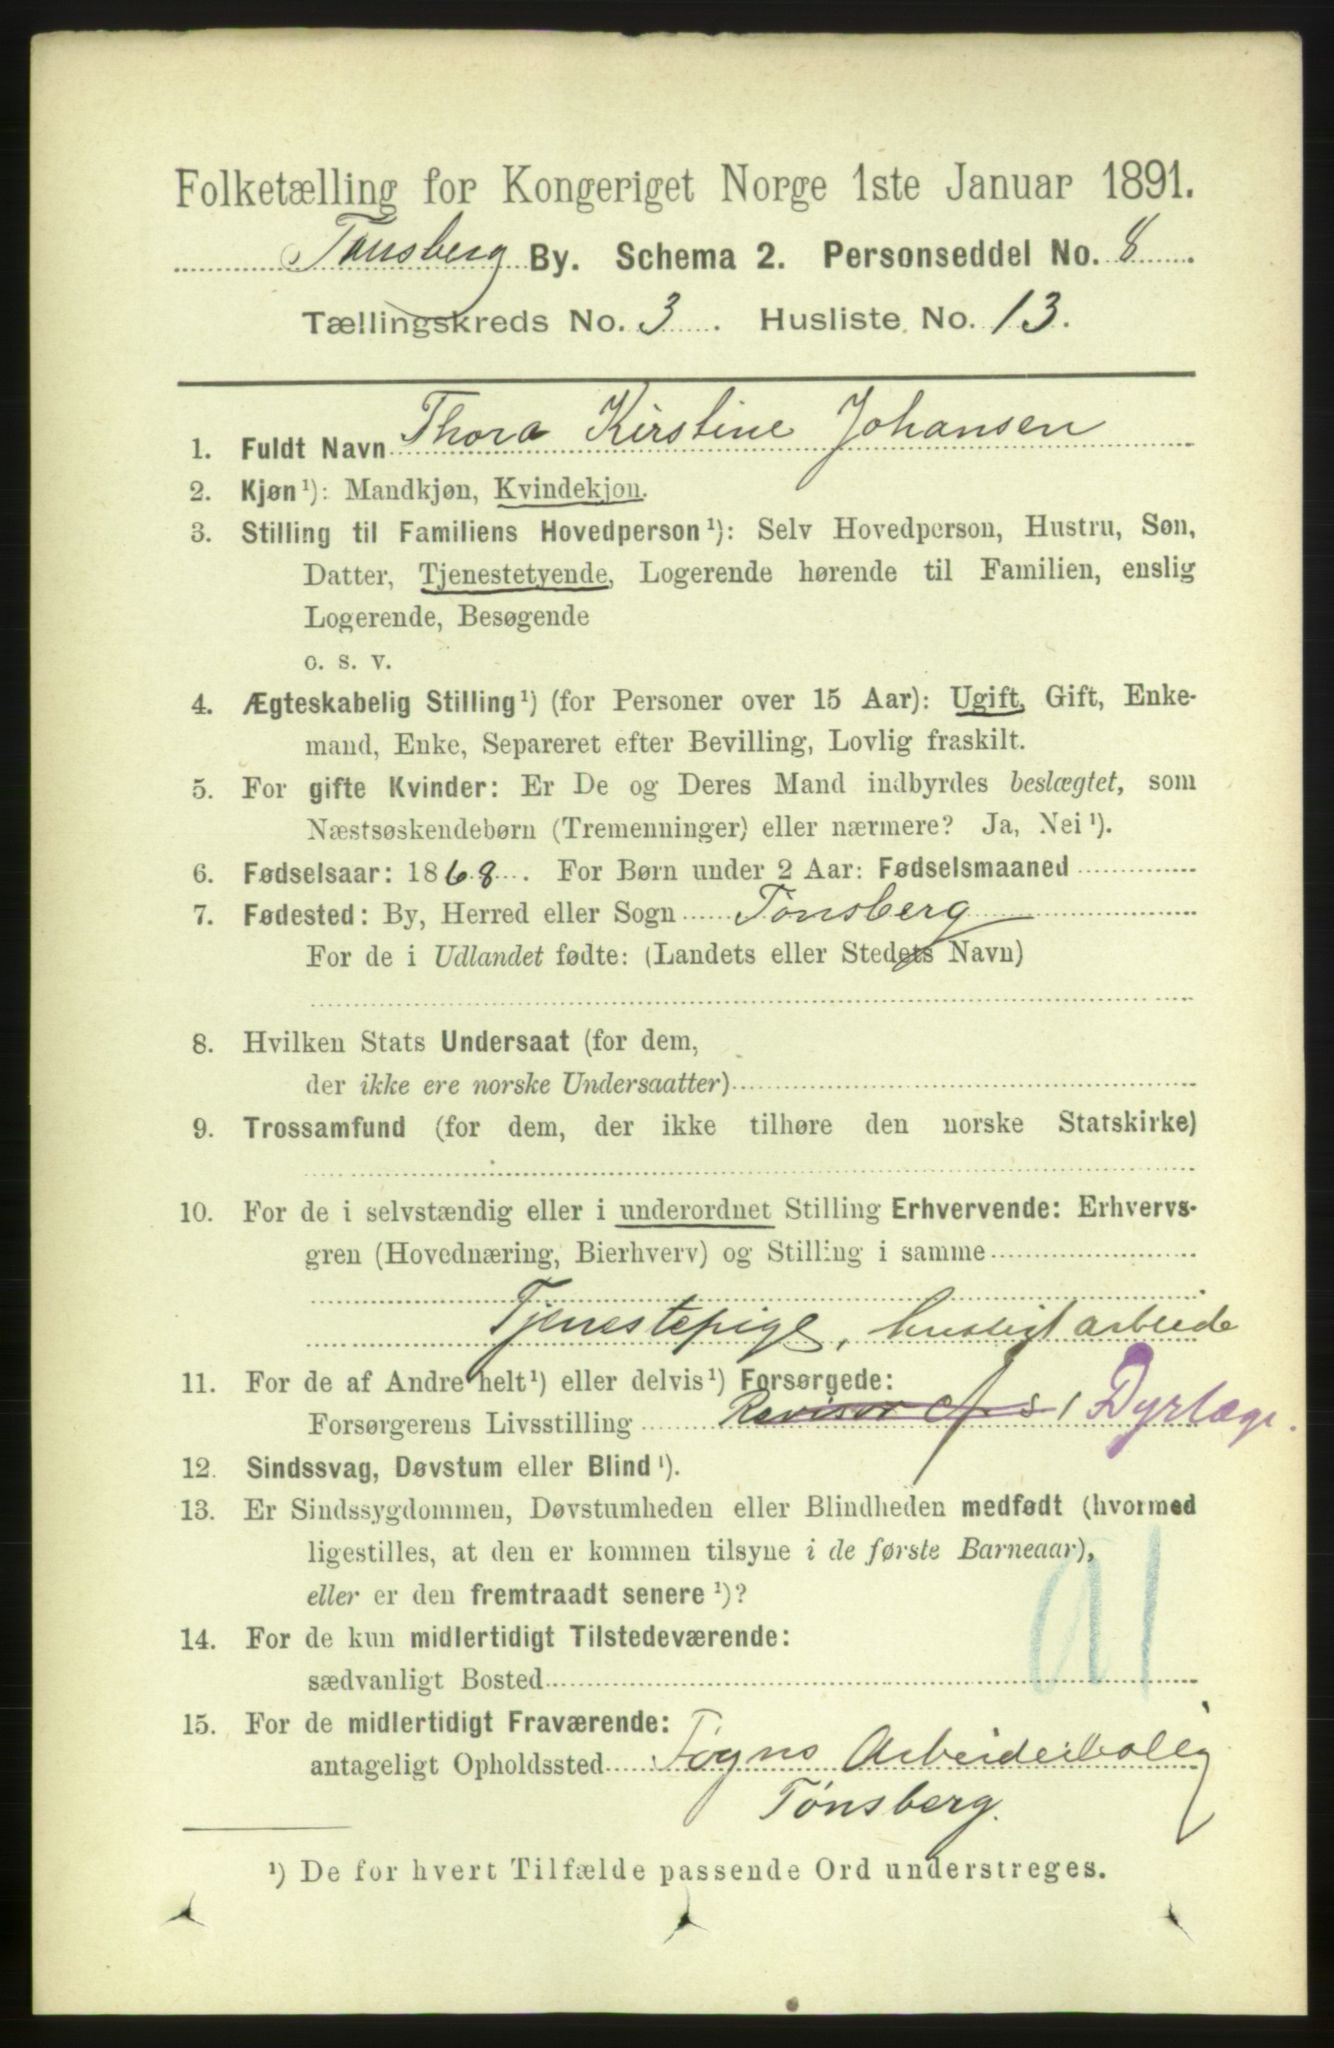 Folketælling for Kongeriget Norge 1ste Januar 1891.
Tønsberg By. Schema 2. Personseddel No. 8
Tællingskreds No. 3. Husliste No. 13.
1. Fuldt Navn Thora Kirstine Johansen
2. Kjøn ¹): Mandkjøn, Kvindekjøn.
3. Stilling til Familiens Hovedperson ¹): Selv Hovedperson, Hustru, Søn,
Datter, Tjenestetyende, Logerende hørende til Familien, enslig
Logerende, Besøgende
o. s. v.
4. Ægteskabelig Stilling ¹) (for Personer over 15 Aar): Ugift, Gift, Enke-
mand, Enke, Separeret efter Bevilling, Lovlig fraskilt.
5. For gifte Kvinder: Er De og Deres Mand indbyrdes beslægtet, som
Næstsøskendebørn (Tremenninger) eller nærmere? Ja, Nei ¹).
6. Fødselsaar: 1868. For Børn under 2 Aar: Fødselsmaaned
7. Fødested: By, Herred eller Sogn Tønsberg
For de i Udlandet fødte: (Landets eller Stedets Navn)
8. Hvilken Stats Undersaat (for dem,
der ikke ere norske Undersaatter)
9. Trossamfund (for dem, der ikke tilhøre den norske Statskirke)
10. For de i selvstændig eller i underordnet Stilling Erhvervende: Erhvervs-
gren (Hovednæring, Bierhverv) og Stilling i samme
Tjenestepige, husligt arbeide
11. For de af Andre helt ¹) eller delvis ¹) Forsørgede:
Forsørgerens Livsstilling Revisor Dyrlæge.
12. Sindssvag, Døvstum eller Blind ¹).
13. Er Sindssygdommen, Døvstumheden eller Blindheden medfødt (hvormed
ligestilles, at den er kommen tilsyne i de første Barneaar),
eller er den fremtraadt senere ¹)?
14. For de kun midlertidigt Tilstedeværende:
sædvanligt Bosted
15. For de midlertidigt Fraværende:
antageligt Opholdssted Føgns Arbeiderbolig
Tønsberg.
¹) De for hvert Tilfælde passende Ord understreges.